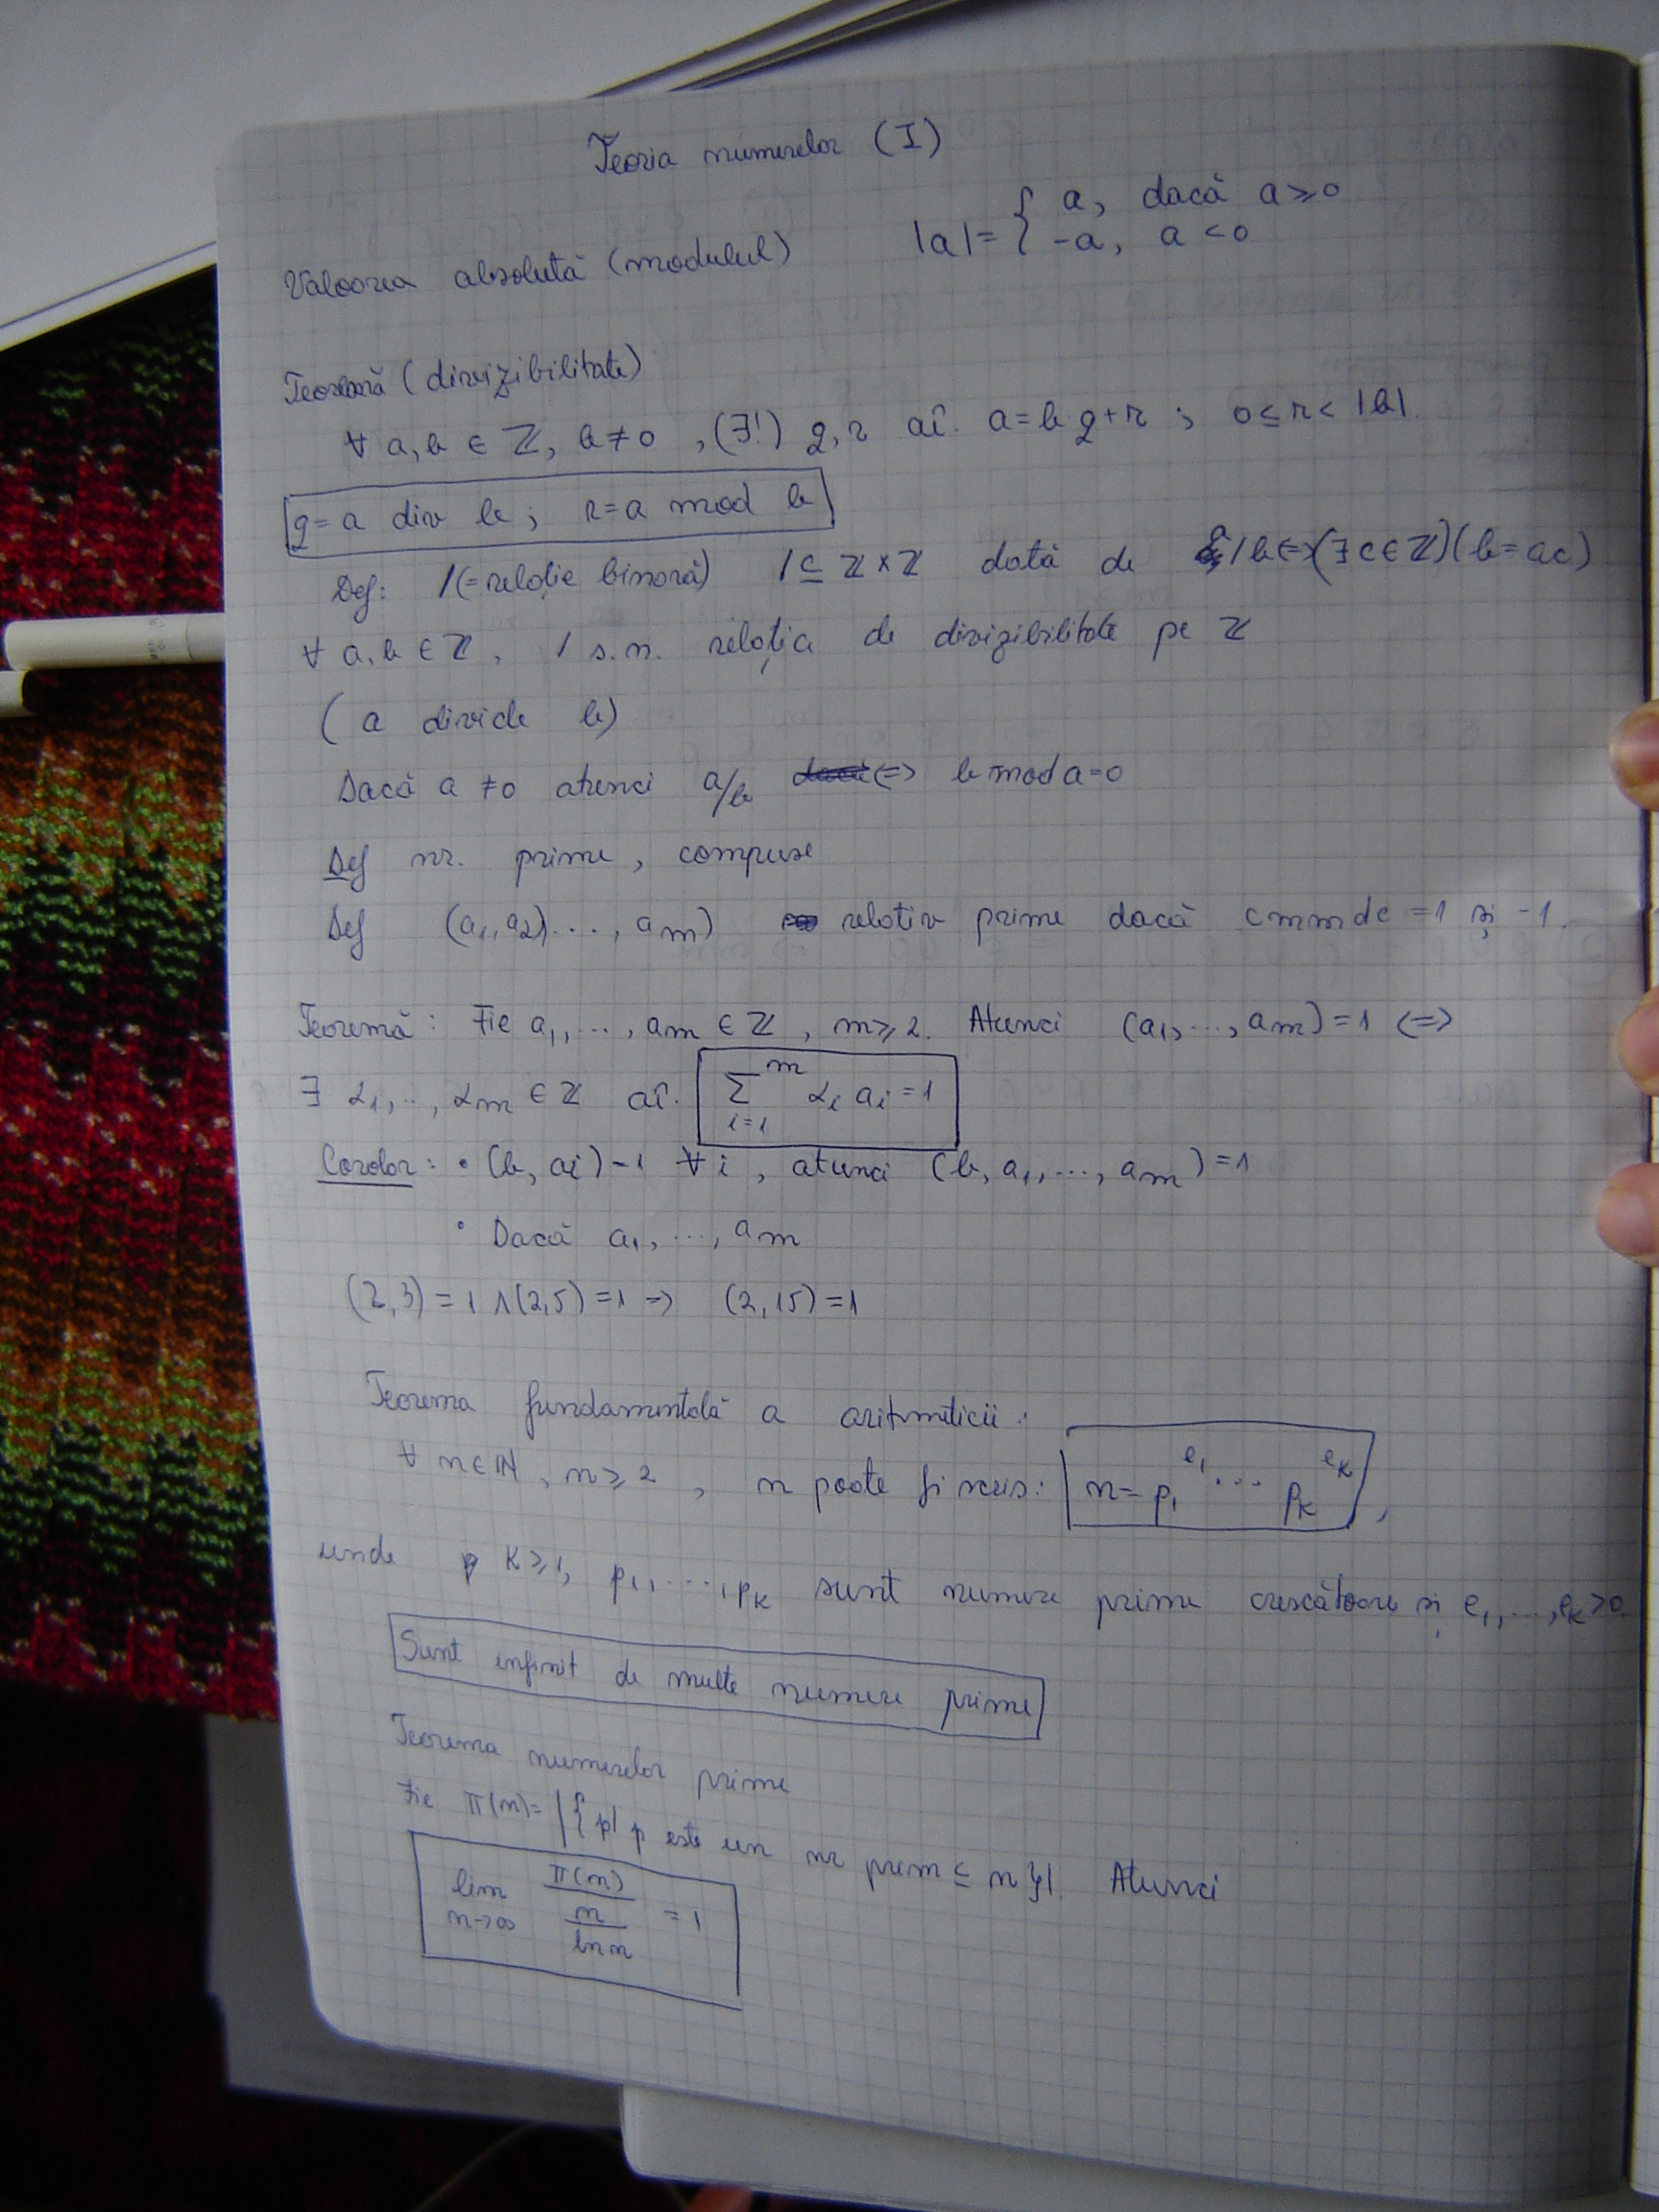 Teoria numerelor (I)
Valoarea absolută (modulul) |a| = { a, dacă a ≥ 0
-a, a < 0
Teoremă (divizibilitate)
∀ a, b ∈ ℤ, b ≠ 0, (∃!) q, r aî. a = b q + r ; 0 ≤ r < |b|.
q = a div b ; r = a mod b
Def: / (= relație binară) / ⊆ ℤ × ℤ dată de a / b <=> (∃ c ∈ ℤ)(b = ac)
∀ a, b ∈ ℤ, / s.n. relația de divizibilitate pe ℤ
( a divide b)
Dacă a ≠ 0 atunci a/b <=> b mod a = 0
Def nr. prime, compuse
Def (a₁, a₂, ..., aₘ) relativ prime dacă cmmdc = 1 și -1.
Teoremă : Fie a₁, ..., aₘ ∈ ℤ, m ≥ 2. Atunci (a₁, ..., aₘ) = 1 <=>
∃ α₁, .., αₘ ∈ ℤ aî. ∑_{i=1}^{m} αᵢ aᵢ = 1
Corolar : • (b, aᵢ) = 1 ∀ i, atunci (b, a₁, ..., aₘ) = 1
• Dacă a₁, ..., aₘ
(2,3) = 1 ∧ (2,5) = 1 => (2,15) = 1
Teorema fundamentală a aritmeticii :
∀ n ∈ ℕ, n ≥ 2, n poate fi scris: n = p₁^{e₁} ... pₖ^{eₖ},
unde k ≥ 1, p₁, ..., pₖ sunt numere prime crescătoare și e₁, ..., eₖ > 0
Sunt infinit de multe numere prime
Teorema numerelor prime
Fie π(n) = |{ p | p este un nr prim ≤ n }|. Atunci
lim_{n→∞} π(n) / (n / ln n) = 1